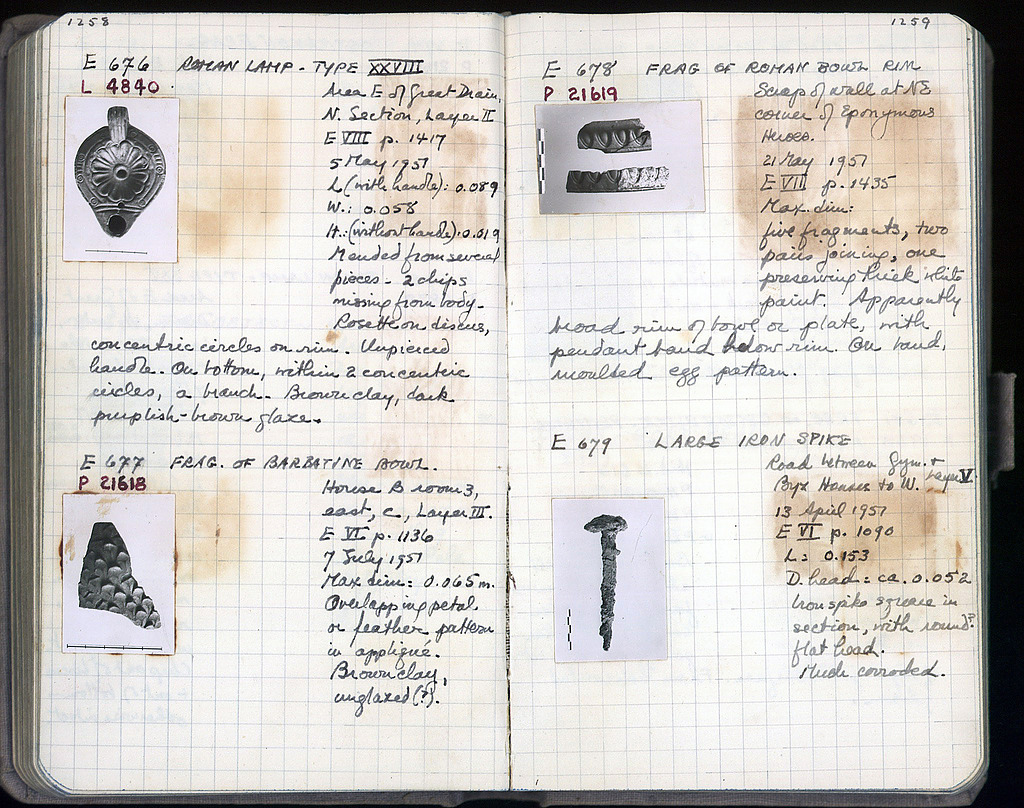 1258
E 676 ROMAN LAMP - TYPE XXVIII
L 4840
Area E of Great Drain,
N. Section, Layer II
E VIII p. 1417
5 May 1951
L (with handle): 0.089
W.: 0.058
H.: (without handle): 0.019
Mended from several
pieces - 2 chips
missing from body.
Rosette on discus,
concentric circles on rim. Unpierced
handle. On bottom, within 2 concentric
circles, a branch. Brown clay, dark
purplish-brown glaze.
E 677 FRAG. OF BARBATINE BOWL.
P 21618
House B room 3,
east, C, Layer III.
E VI p. 1136
7 July 1951
Max dim: 0.065 m.
Overlapping petal
or feather pattern
in appliqué.
Brown clay,
unglazed (?).
1259
E 678 FRAG OF ROMAN BOWL RIM
P 21619
Scrap of wall at NE
corner of Eponymous
Heroes.
21 May 1951
E VII p. 1435
Max. dim:
five fragments, two
pairs joining, one
preserving thick white
paint. Apparently
broad rim of bowl or plate, with
pendant band below rim. On band,
moulded egg pattern.
E 679 LARGE IRON SPIKE
Road between Gym. +
Byz Houses to W. Layer V.
13 April 1951
E VI p. 1090
L: 0.153
D. head: ca. 0.052
Iron spike square in
section, with round?
flat head.
Much corroded.